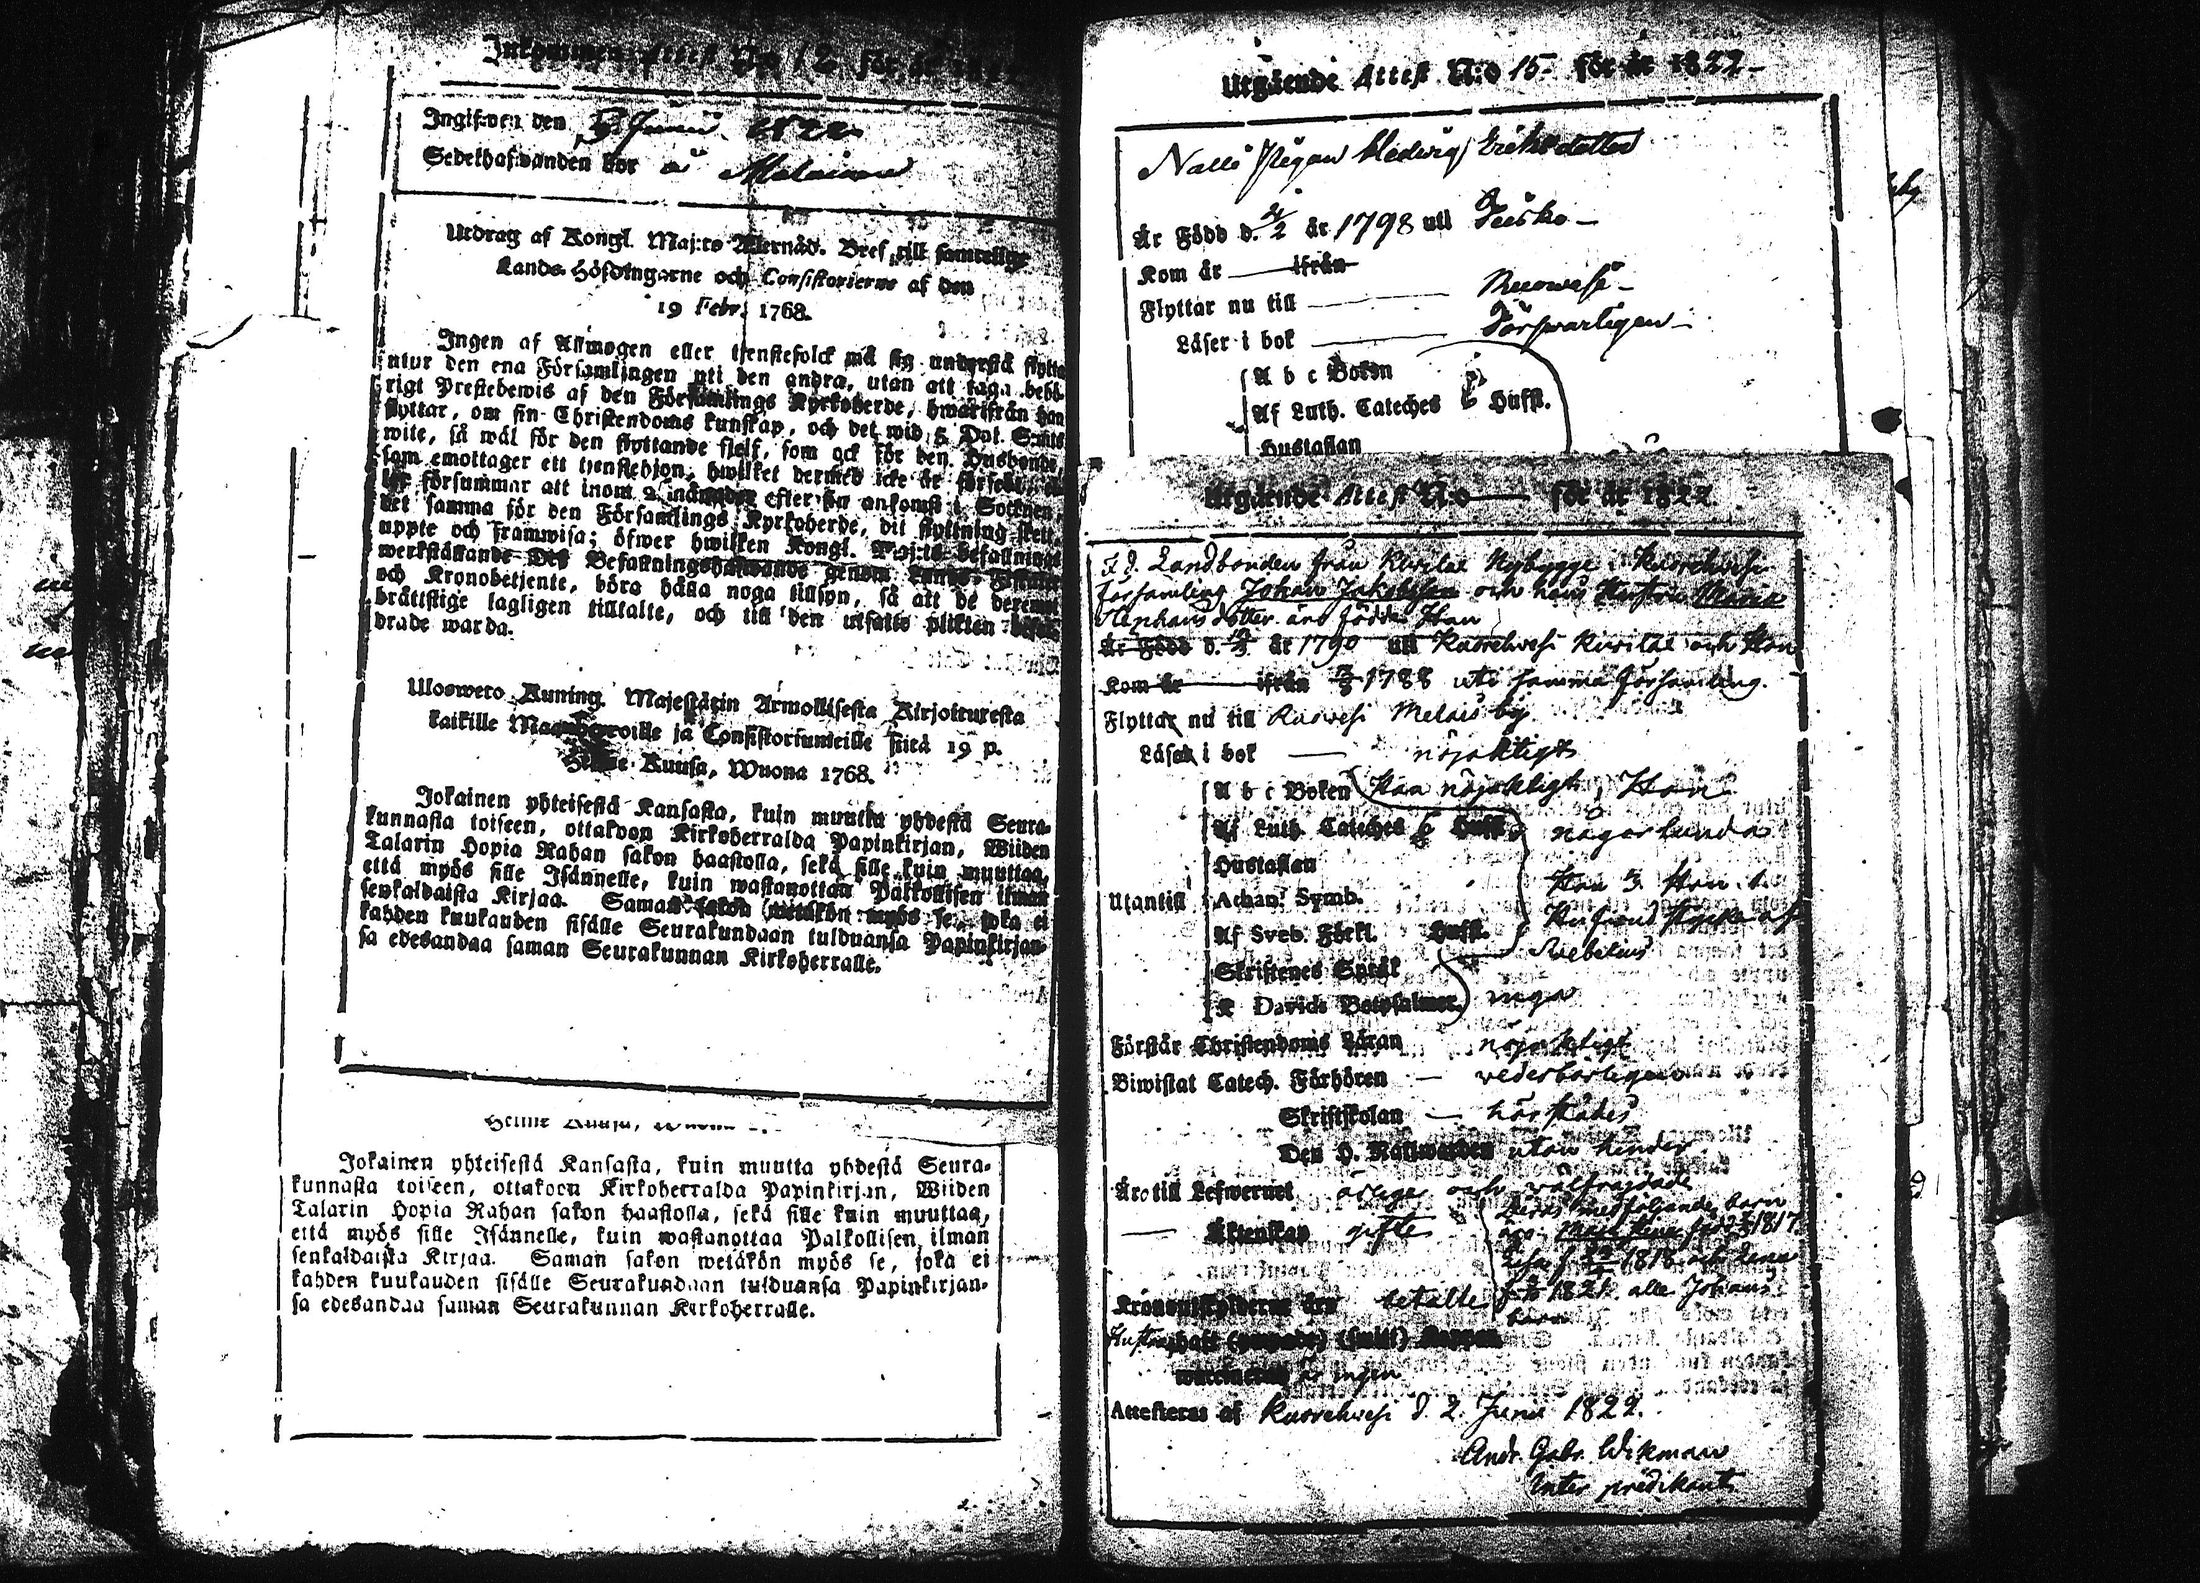 Inkommen Attest N:o 12 för år 1822
Ingifven den 9 Junii 1822
Sedelhafwanden bor å
Utdrag af Kongl. Maj:ts Allernåd. Bref till samtellige
Lands-Höfdingarne och Consistorierne af den
19 Febr. 1768.
Ingen af Allmogen eller tjenstefolck må sig understå flytta
utur den ena Församlingen uti den andra, utan att taga behö-
rigt Prestebewis af den Församlings Kyrkoherde, hwarifrån han
flyttar, om sin Christendoms kunskap, och det wid 5 Dal. S:mts
wite, så wäl för den flyttande sjelf, som ock för den Husbonde,
som emottager ett tjenstehjon, hwilket dermed icke är försedt,
försummar att inom 2 månader efter sin ankomst i Socknen,
det samma för den Församlings Kyrkoherde, dit flyttning skett,
uppte och framwisa; öfwer hwilken Kongl. Maj:ts befallnings
werkställande Des Befallningshafwande genom Lands-Fiscaler
och Kronobetjente, böra hålla noga tillsyn, så att de deremot
brättslige lagligen tilltalte, och till den utsatte plikten
drade warda.
Ulosweto Kuning. Majestätin Armollisesta Kirjoituresta
kaikille Maanherroille ja Consistoriumeille siitä 19 p.
Helme-Kuusa, Wuona 1768.
Jokainen yhteisestä Kansasta, kuin muutta yhdestä Seura-
kunnasta toiseen, ottakoon Kirkoherralda Papinkirjan, Wiiden
Talarin Hopia Rahan sakon haastolla, sekä sille kuin muuttaa,
että myös sille Isännelle, kuin wastanottaa Palkollisen ilman
senkaldaista Kirjaa. Saman sakon wetäkön myös se, joka ei
kahden kuukauden sisälle Seurakundaan tulduansa Papinkirjan-
sa edesandaa saman Seurakunnan Kirkoherralle.
Helme Kuusa, Wuona
Jokainen yhteisestä Kansasta, kuin muutta yhdestä Seura-
kunnasta toiseen, ottakoon Kirkoherralda Papinkirjan, Wiiden
Talarin Hopia Rahan sakon haastolla, sekä sille kuin muuttaa,
että myös sille Isännelle, kuin wastanottaa Palkollisen ilman
senkaldaista Kirjaa. Saman sakon wetäkön myös se, joka ei
kahden kuukauden sisälle Seurakundaan tulduansa Papinkirjan-
sa edesandaa saman Seurakunnan Kirkoherralle.
Utgående Attest N:o 15 för år 1822
Pigan Hedwig Eriksdotter
År Född d. år 1798 uti Teisko
Kom år ifrån
Flyttar nu till Ruowesi
Läser i bok Försvarligen
A b c Boken
Af Luth. Cateches 6 Hufst.
Hustaflan
Utgående Attest N:o för år 1822
F. d. Landbonden från Nybygge i Kuorehwesi
församling Johan Jakobsson och hans Hustru Maria
Stephansdotter äro födde Han
År Född d. år 1790 uti Kuorehwesi och Hon
Kom år ifrån 1788 uti samma församling.
Flyttar nu till Ruowesi by
Läser i bok nöjaktigt
A b c Boken Han nöjaktigt, Hon
Af Luth. Cateches 6 Hufst. någorlunda
Hustaflan
Utantill Athan. Symb. Han 3. Hon 1.
Af Sveb. Förkl. Hufst. Hufwud stycke af
Skriftenes Språk Svebelius
K Davids Botpsalmer inga
Förstår Christendoms Läran nöjaktigt
Biwistat Catech. Förhören wederbörligen
Skriftskolan härstädes
Den H. Nattwarden utan hinder
Äro till Lefwernet ärlige och wälfrejdade
Äktenskap gifte
Deras medföljande barn
1817
1818 och
1821. alle Johans
barn
Kronoutskylderne äro betalte
Hustrun haft
är ingen
Attesteras af Kuorehwesi d. 2 Junii 1822.
Andr. Gabr. Wikman
Inter. predikant